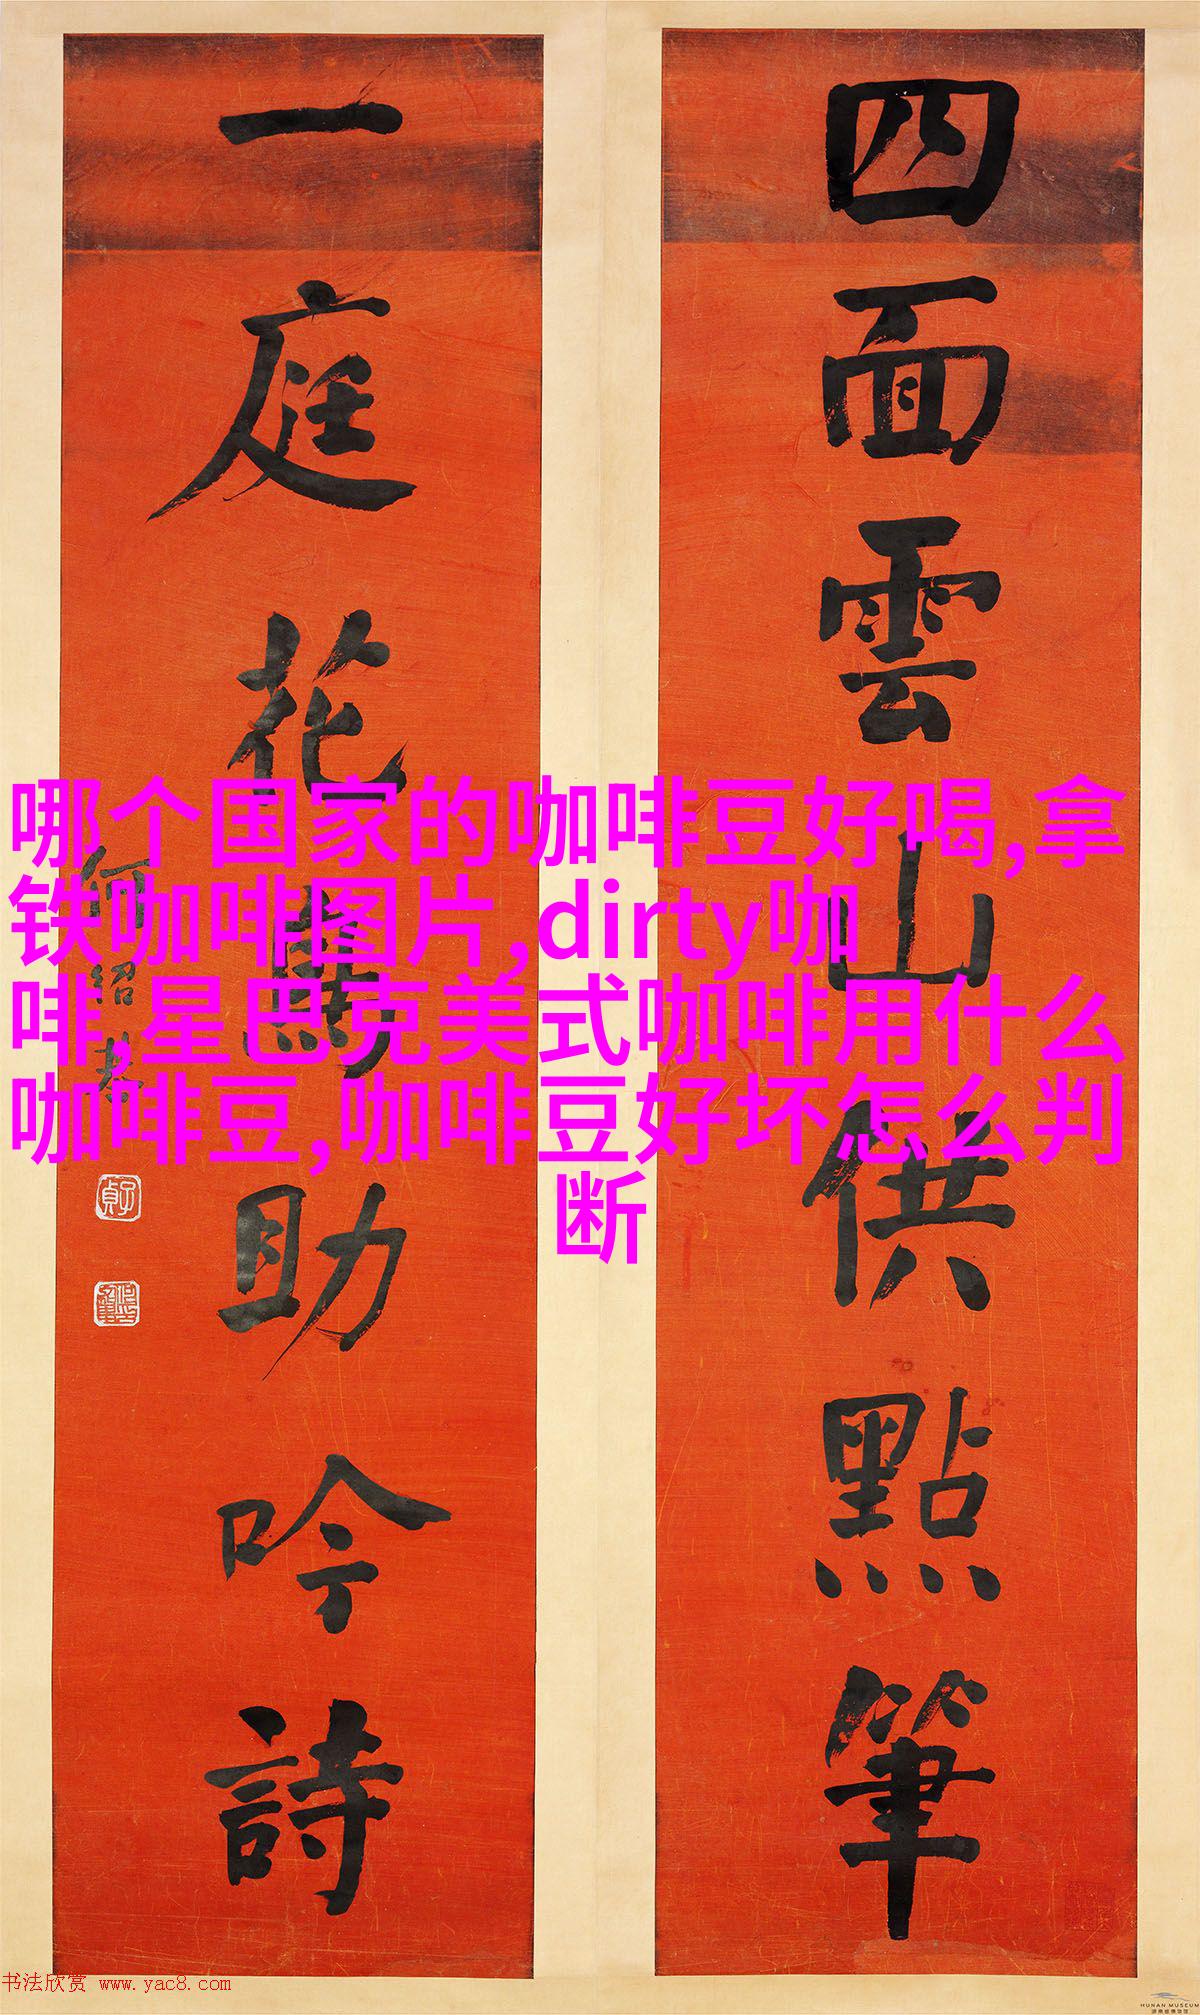 四面雲山供點筆
一庭花鳥助吟詩
何紹基
哪个国家的咖啡豆好喝,拿
铁咖啡图片,dirty咖
啡,星巴克美式咖啡用什么
咖啡豆,咖啡豆好坏怎么判
断
书法欣赏 www.yac8.com
HUNAN MUSEUM